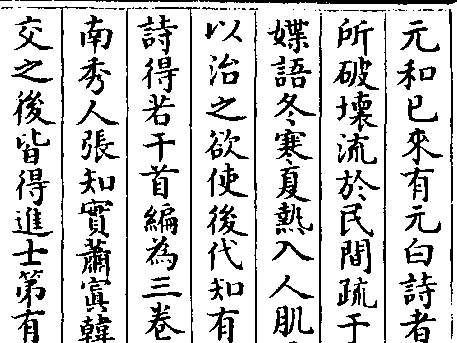 元和已來有元白詩者
所破壞流於民間疏于
媟語冬寒夏熱入人肌
以治之欲使後代知有
詩得若干首編為三卷
南秀人張知實蕭寘韓
交之後皆得進士第有